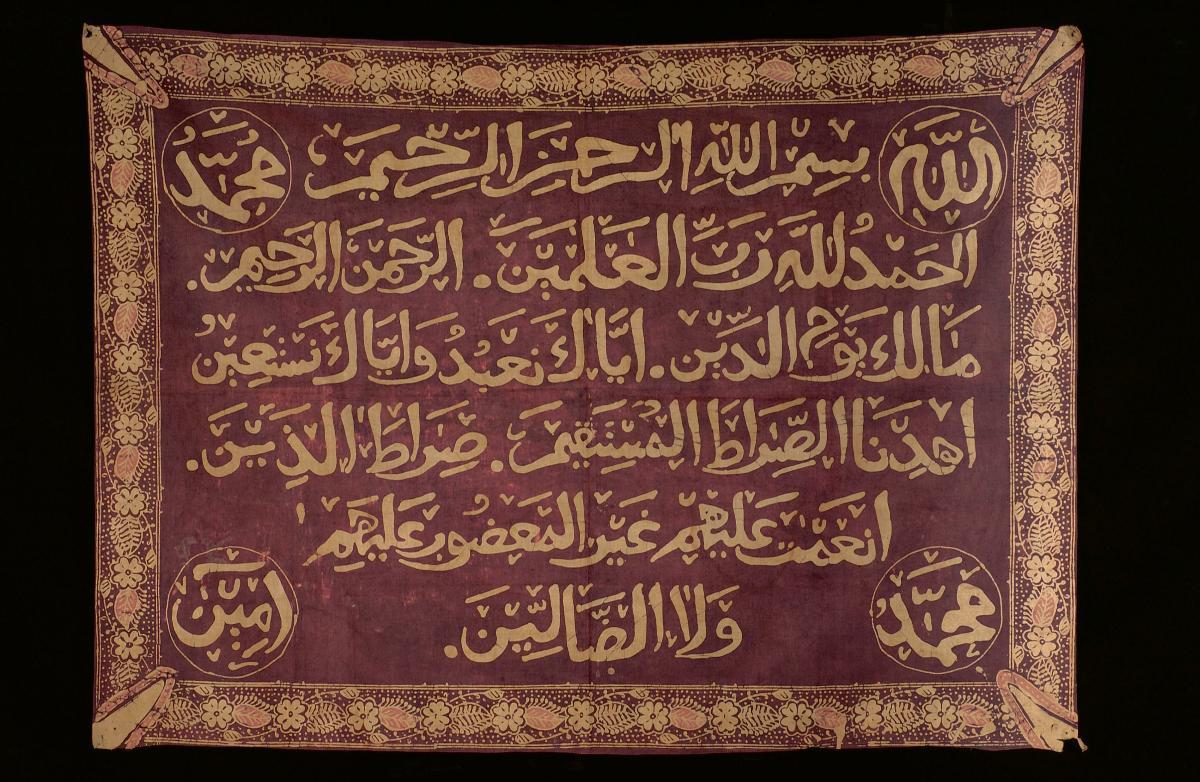 الله
بِسْمِ اللهِ الرحمن الرَّحِيمِ
محمد
الحَمْدُ للهِ رَبِّ العَلَمِينَ. الرَّحمَن الرَّحِيمِ.
مَالِكِ يَوْمِ الدِّين. ايَّاكَ نعَبُدُ وَايَّاكَ نَسْتَعِينُ
اهْدِنَا الصِّرَاطَ المُسْتَقِيمَ. صِرَاطَ الذِينَ.
انعَمْتَ عَلَيهِم غَيْرِ المَغضُوبِ عَلَيهِم
وَلَا الضَّالِّينَ.
محمد
امين